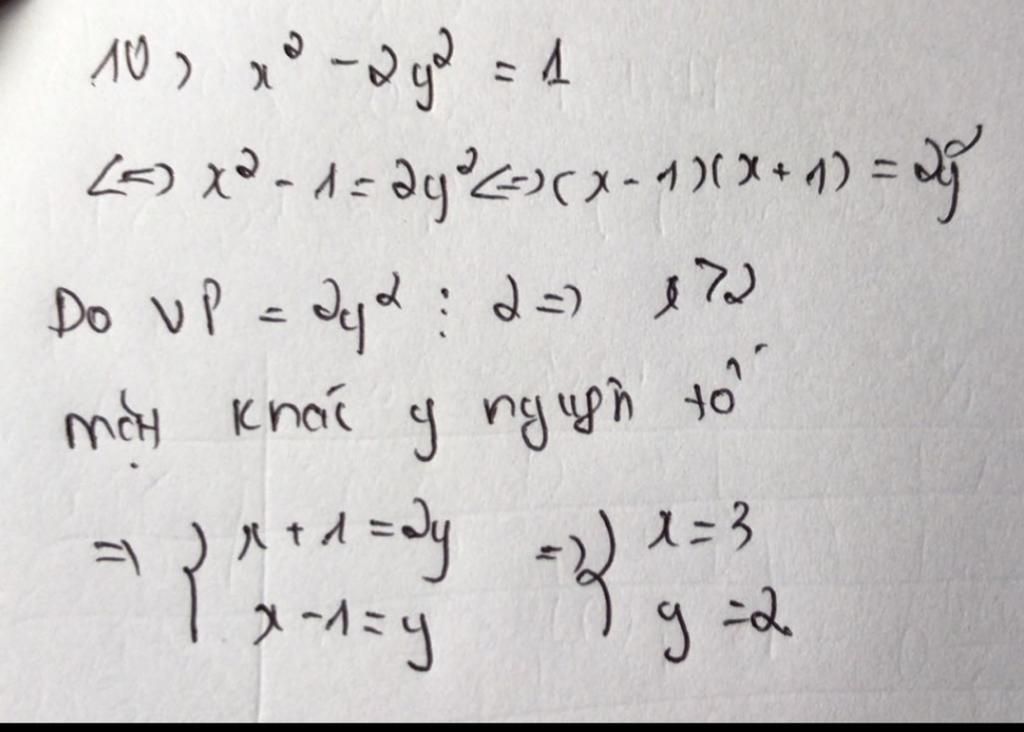 10) x² - 2y² = 1
<=> x² - 1 = 2y² <=> (x - 1)(x + 1) = 2y²
Do VP = 2y² ⋮ 2 =>
mặt khác y nguyên tố
=> { x + 1 = 2y => { x = 3
x - 1 = y y = 2